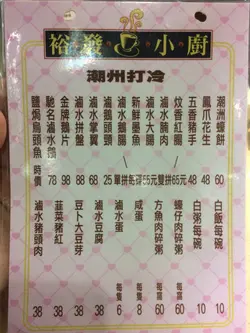 裕發小廚
潮州打冷
潮洲蠔餅 60
鳳爪花生 48
五香豬手 48
炆香紅腸
滷水腩肉
滷水大腸
新鮮墨魚
滷水鵝腸
單拼每碟55元 雙拼65元
滷鵝頭頸 25
滷水掌翼 68
滷水拼盤 88
金牌鵝片 98
馳名滷水鵝 78
鹽焗烏頭魚 時價
白飯每碗 10
白粥每碗 10
蠔仔肉碎粥 60
方魚肉碎粥 45
咸蛋 每隻 8
滷水蛋 每隻 6
滷水豆腐 38
豆卜大豆芽 38
韮菜豬紅 38
滷水豬頭肉 38